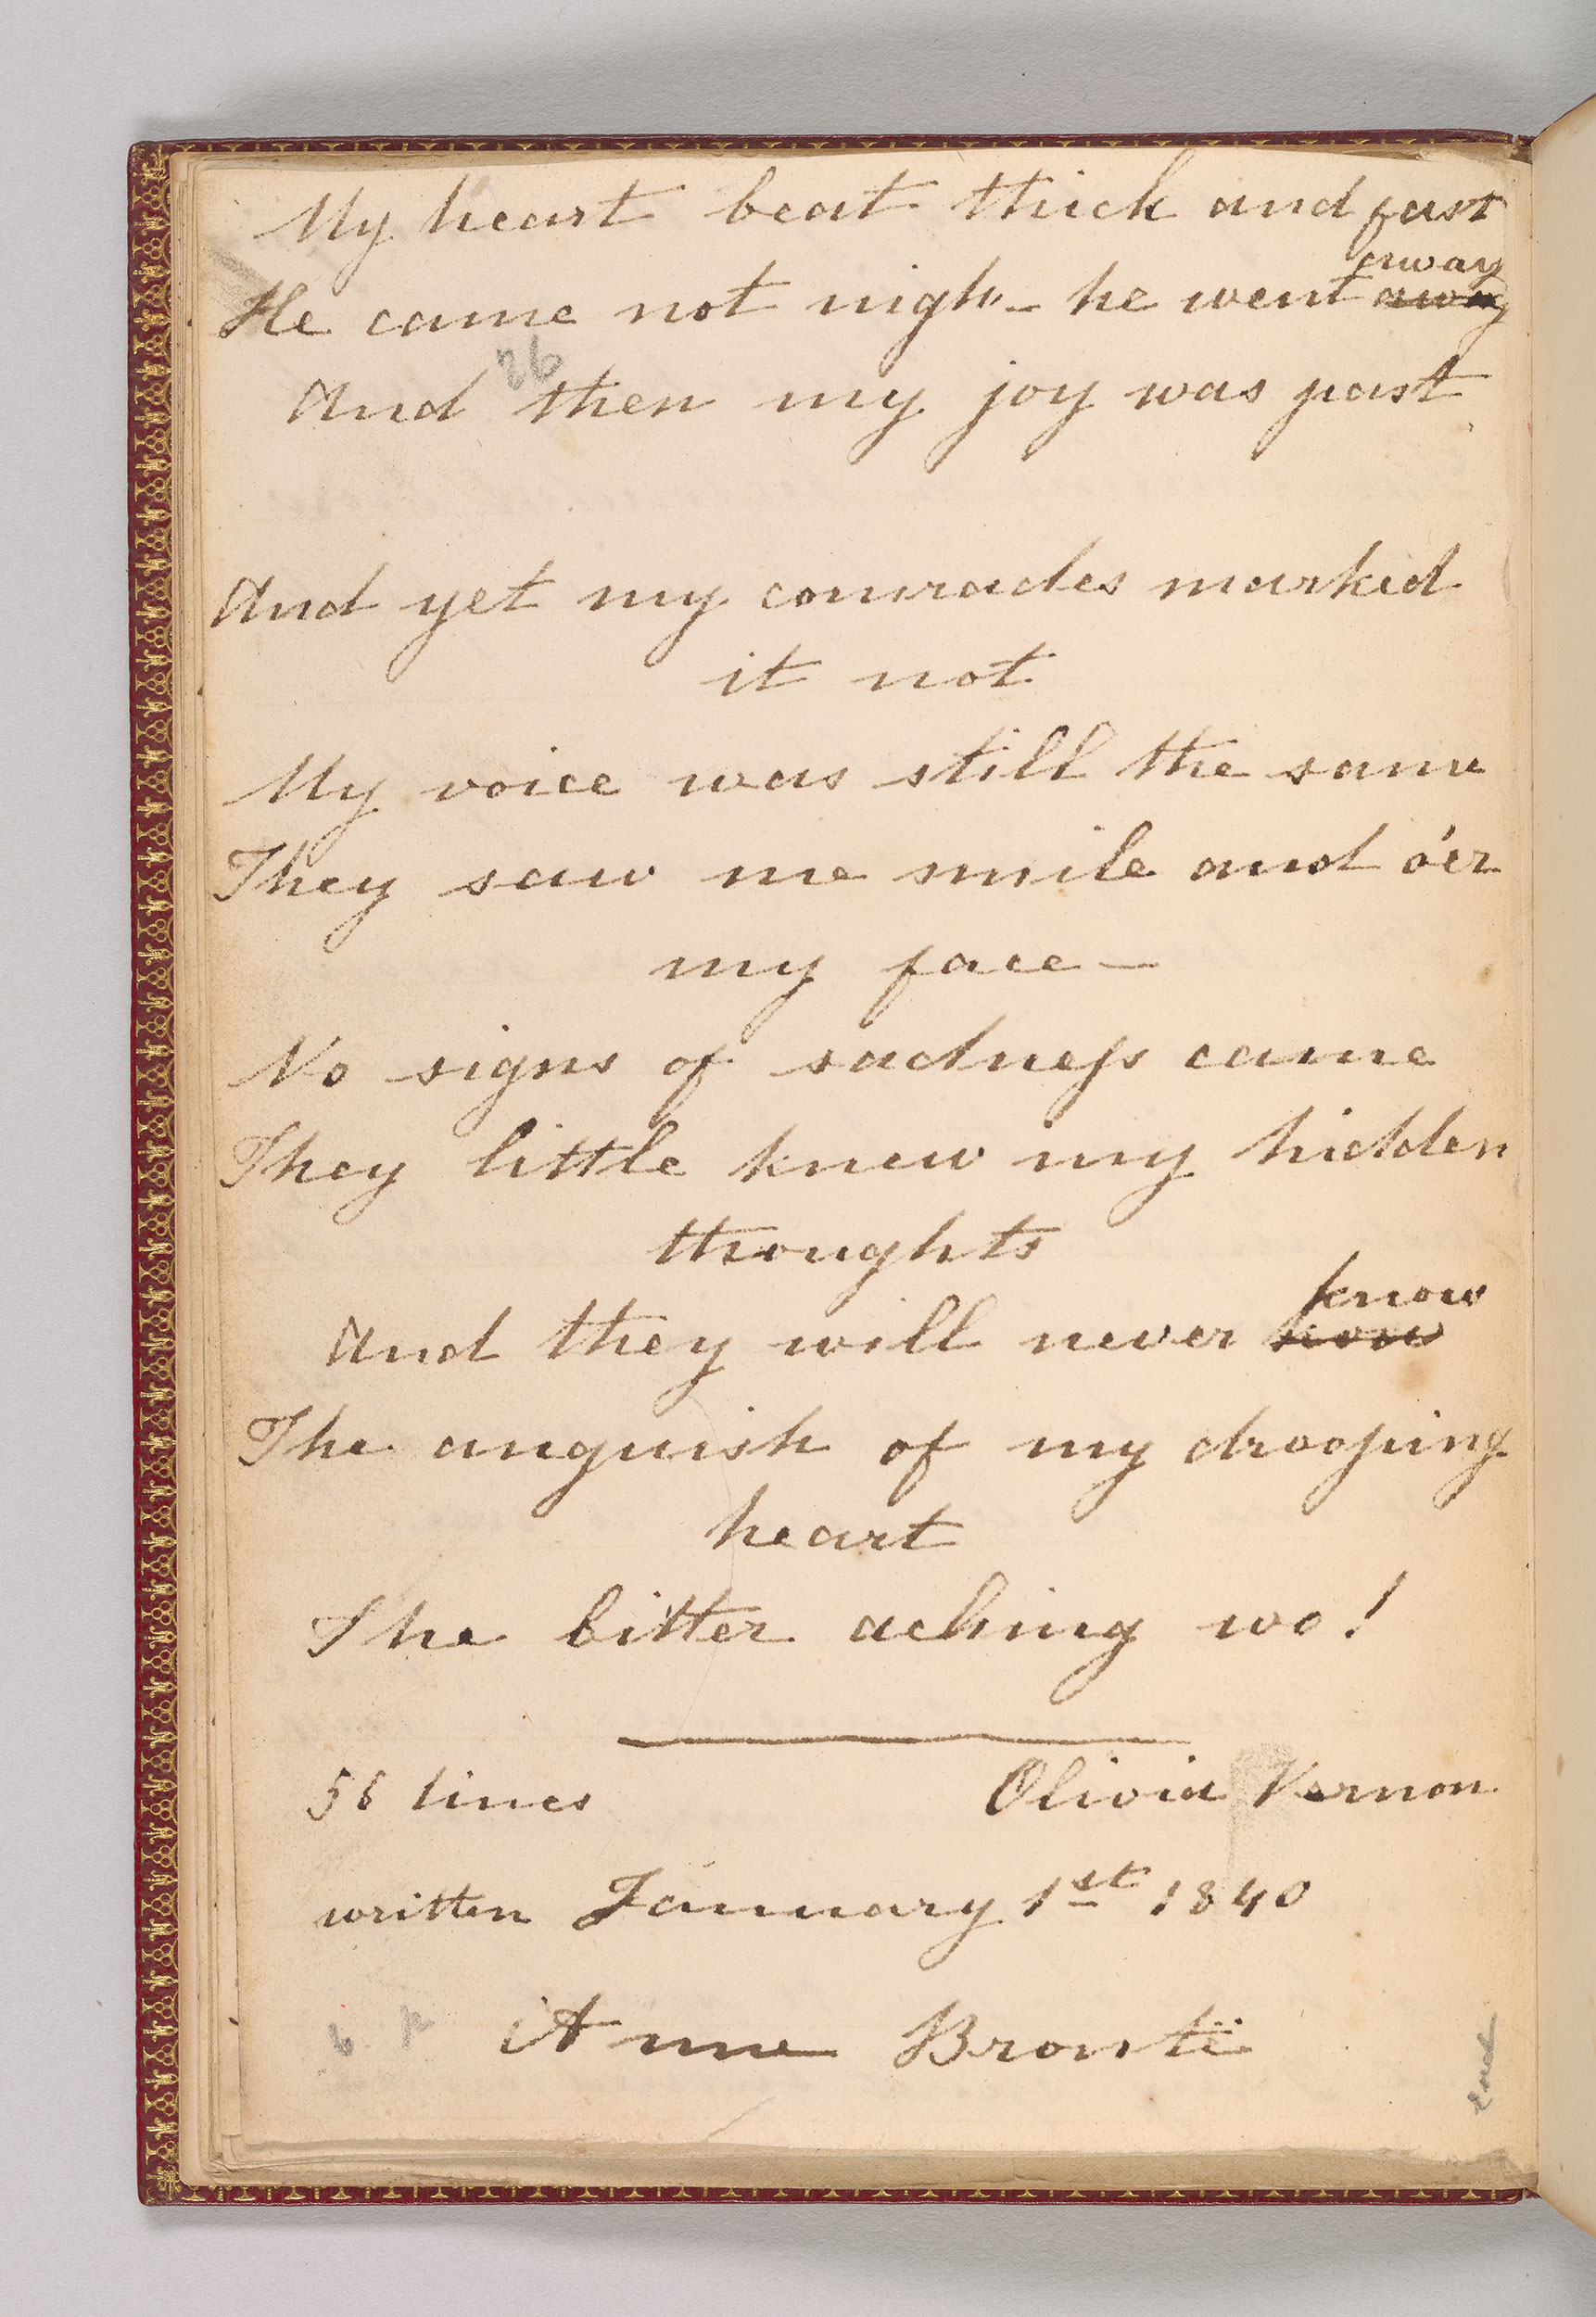 My heart beat thick and fast
away
He came not nigh - he went away
26
And then my joy was past
And yet my comrades marked
it not
My voice was still the same
They saw me smile and o'er
my face —
No signs of sadness came
They little knew my hidden
thoughts
know
And they will never
The anguish of my drooping
heart
The bitter aching wo!
56 lines Olivia Vernon
written January 1st 1840
Anne Brontë
End